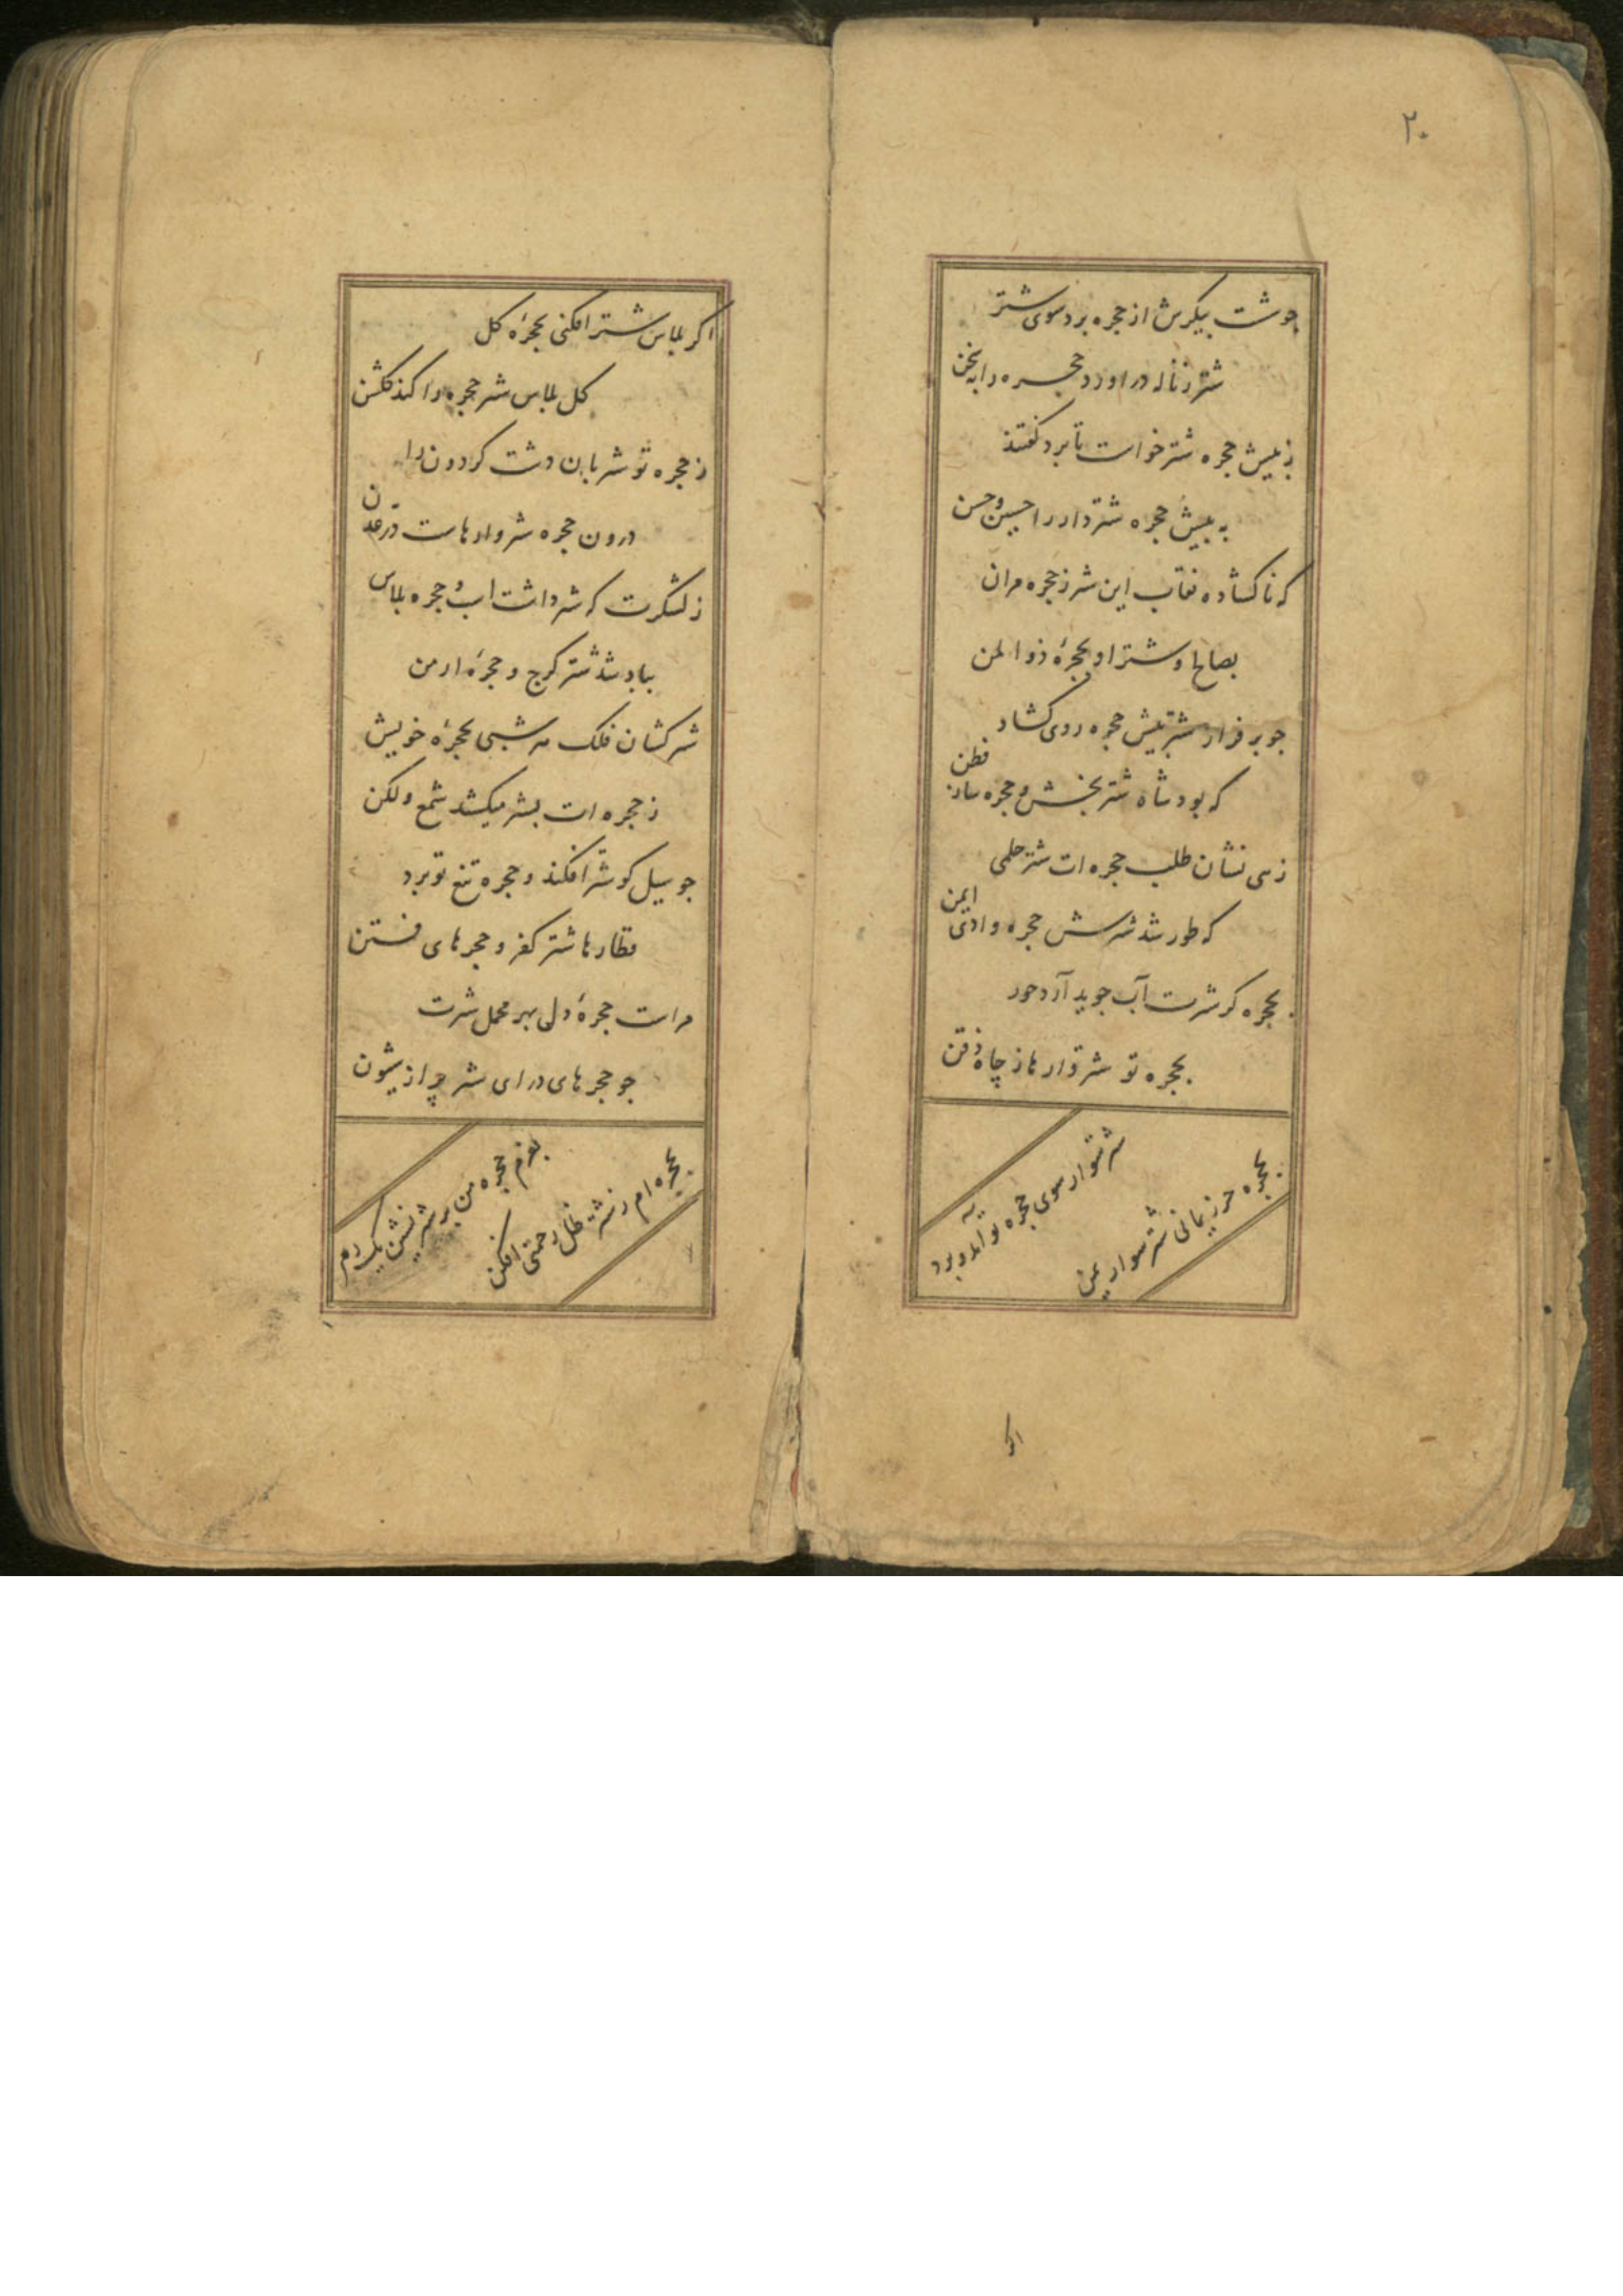 ۲۰
جو شست پیکرش از حجره برد سوی شتر
شتر ز ناله دراورد حجره را به سخن
ز پیش حجره شتر خواست تا برد گفتند
به پیش حجره شتردار را حسین و حسن
که ناکشاده نقاب این شتر ز حجره مران
بصالح و شتر او بحجرهٔ ذو المن
جو بر فراز شتر پیش حجره روی کشاد
که بود شاه شتر بخش و حجره ساز فطن
زهی نشان طلب حجره ات شتر حلمی
که طور شد شترش حجره وادی ایمن
بحجره کر شترت آب جوید آرد حور
بحجره تو شتروارها ز چاه ذقن
شتر سوار سوی حجره تو آید و برد
بحجره حرز یمانی شتر سوار یمن
اکر
اکر پلاس شتر افکنی بحجرهٔ کل
کل پلاس شتر حجره را کند کلشن
ز حجره تو شتربان دشت کردون را
درون حجره شتروارهاست در عدن
ز لشکرت که شتر داشت اب و حجره پلاس
بباد شد شتر کرج و حجرهٔ ارمن
شتر کشان فلک هر شبی بحجرهٔ خویش
ز حجره ات بشتر میکشد شمع و لکن
جو سیل کو شتر افکند و حجره تیغ تو برد
قطارها شتر کفر و حجرهای فتن
مراست حجرهٔ دلی بهر محمل شترت
جو حجرهای درای شتر پر از شیون
بعزم حجره من بر شتر نشین یک دم
بحجره ام ز شتر ظل رحمتی افکن